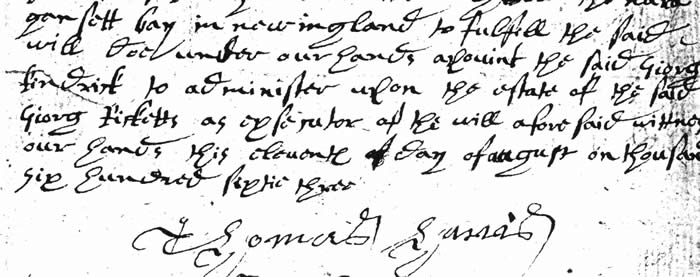 garsett bay in newingland to fulfill the said
will doe under our hands apount the said Georg
Kindrick to administer upon the estate of the said
Georg Ricketts as exsecutor of the will afore said wittnes
our hands this eleventh day of august on thousand
six hundred sixtie three
Thomas Harris